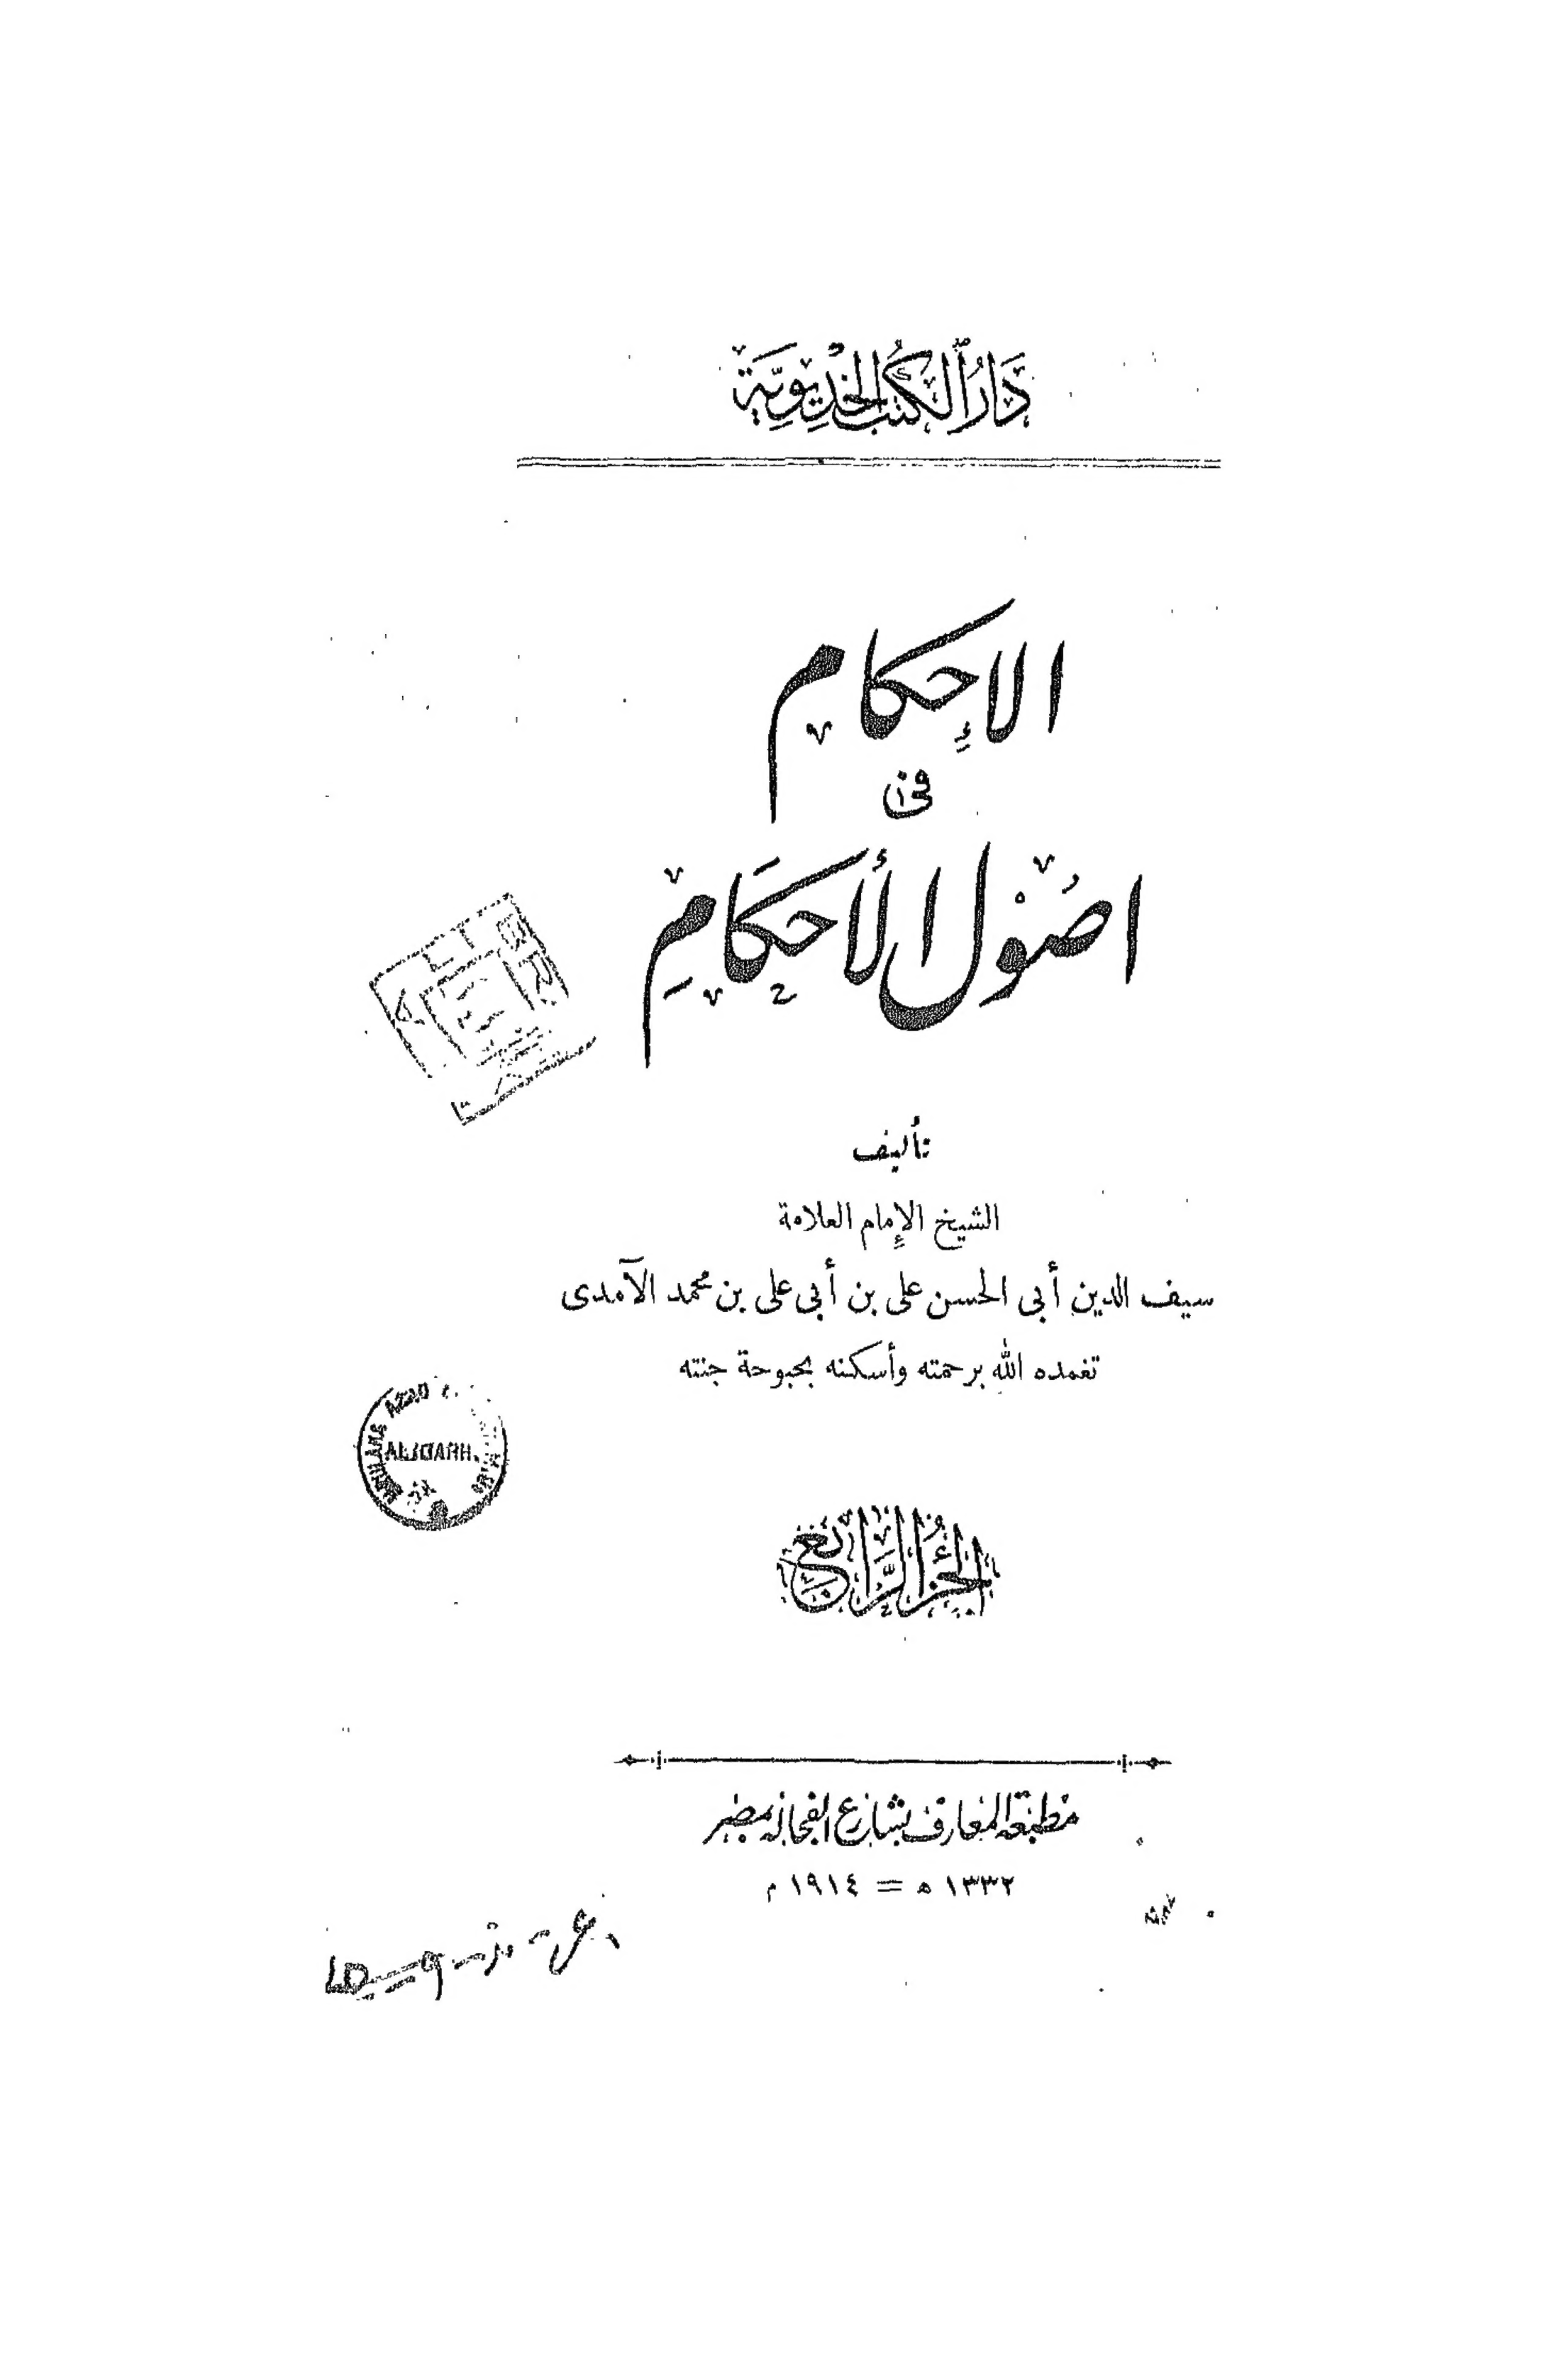 دَارُ ٱلْكُتُبِ الْخِدِيوِيَّةِ
الإِحكام
فى
اصُوْل الأَحكَامِ
تأليف
الشيخ الإِمام العلامة
سيف الدين أبى الحسن على بن أبى على بن محمد الآمدى
تغمده الله برحمته وأسكنه بحبوحة جنته
MAULANA AZAD
ALIGARH.
الجُزْءُ الرَّابِعُ
مطبعة المعارف بشارع الفجالة بمصر
١٣٣٢ ه = ١٩١٤ م